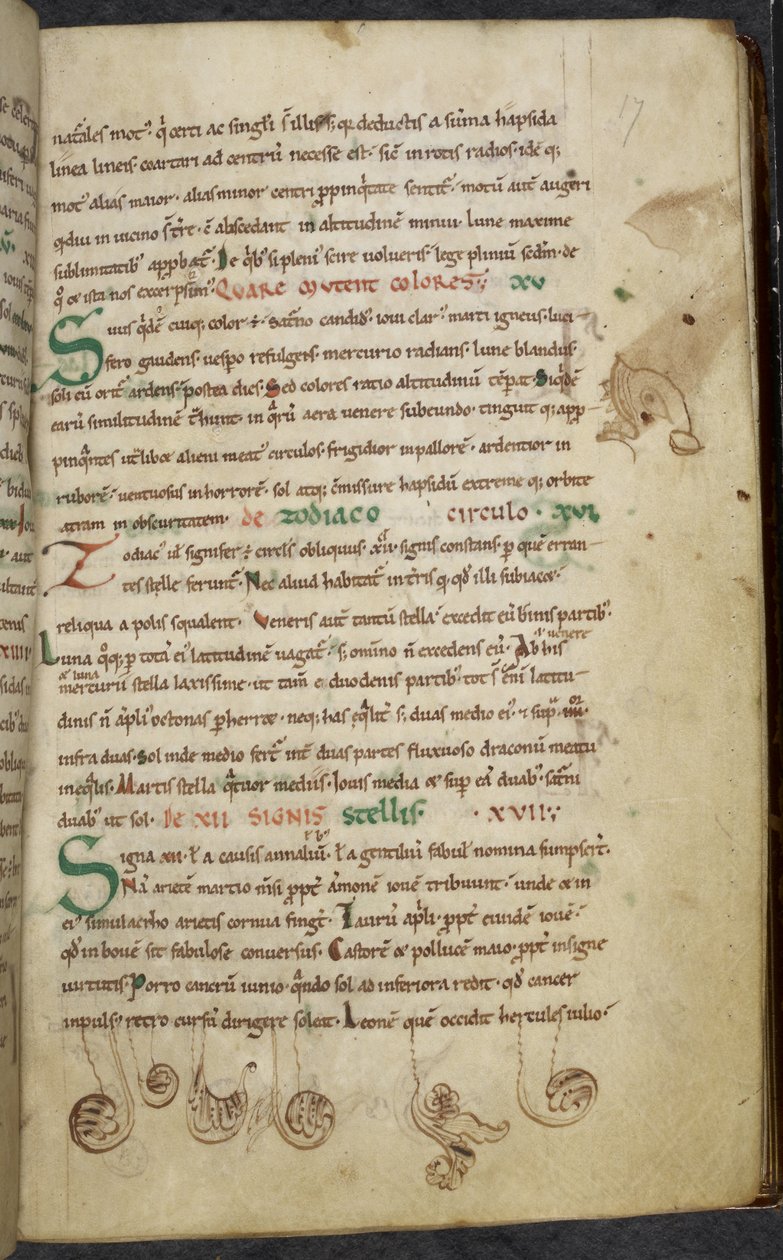 17
nat̃ales mot᷒· q̃ certi ac singłi s̄ illis; q̨ deductis a sūma hapsida
linea lineis coartari ad centrū necesse est· sic̄ in rotis radios· idē q;
mot᷒ alias maior· alias minor centri ꝓpinq̃tate sentit᷑· motū aut̄ augeri
q̃diu in uicino s̄ tr̄re· c̄ abscedant in altitudinē minui· lune maxime
sublimitatib᷒ apꝓbat᷑· De q̃b᷒ si pleni᷒ scire uolueris· lege pliniū scdm̄· de
q̊ & ista nos excerpsim᷒· Qvare mvtent colores· xv
Suus q̃dē cuiq; color ē· sat̃no candid᷒· ioui clar᷒· marti igneus· luci-
fero gaudens· uesꝑo refulgens· mercurio radians· lune blandus·
soli cū orit᷑ ardens· postea dies· Sed colores ratio altitudinū tēꝑat· Siq̃dē
earū similitudinē t̃hunt· in q̃rū aera uenere subeundo· tinguit q; apꝓ-
pinq̃ntes ut̃libæ alieni meat᷒ circulos· frigidior in pallorē· ardentior in
ruborē· uentuosus in horrorē· sol atq; c̄missure hapsidū extreme q; orbite
atram in obscuritatem· de zodiaco circulo· xvi
Zodiac᷒ uł signifer ē circłs obliquus· xii signis constans· ꝑ quē erran-
tes stelle ferunt᷑· Nec aliud habitat᷑ in t̄ris q̃· qd̄ illi subiacæ·
reliqua a polis squalent· Veneris aut̄ tantū stella· excedit eū binis partib᷒·
Luna q̊q; ꝑ totā ei᷒ latitudinē uagat᷑· s; om̄ino n̄ excedens eū· Ab his
ł uenere
& luna
mercurii stella laxissime· ut tam̄ e duodenis partib᷒· tot s̄ eni latitu-
dinis n̄ ap̃li᷒ octonas ꝑherræ· neq; has eq̃lit̄ s; duas medio ei᷒· & sup̄ iiii·
or
infra duas· Sol inde medio fert᷑ int̄ duas partes fluxuoso draconū meatu
ineq̃lis· Martis stella q̃tuor mediis· Iouis media & suꝑ eā duab᷒· sat̃ni
duab᷒ ut sol· De xii signis stellis· xvii·
Signa xii· ł a causis annalib᷒· ł a gentiliū fabuł nomina sumpsert̄·
Nā arietē martio m̄si ꝓpt̄ am̄onē iouē tribuunt· unde & in
ei᷒ simulacrho arietis cornua fingt̄· Taurū ap̃li· ꝓpt̄ eundē iouē·
qd̄ in bouē sit fabulose conuersus· Castorē & pollucē maio· ꝓpt̄ insigne
uirtutis· Porro cancrū iunio· q̃ndo sol ad inferiora redit· qd̄ cancer
inpuls᷒ retro cursū dirigere soleat· Leonē quē occidit hercules iulio·